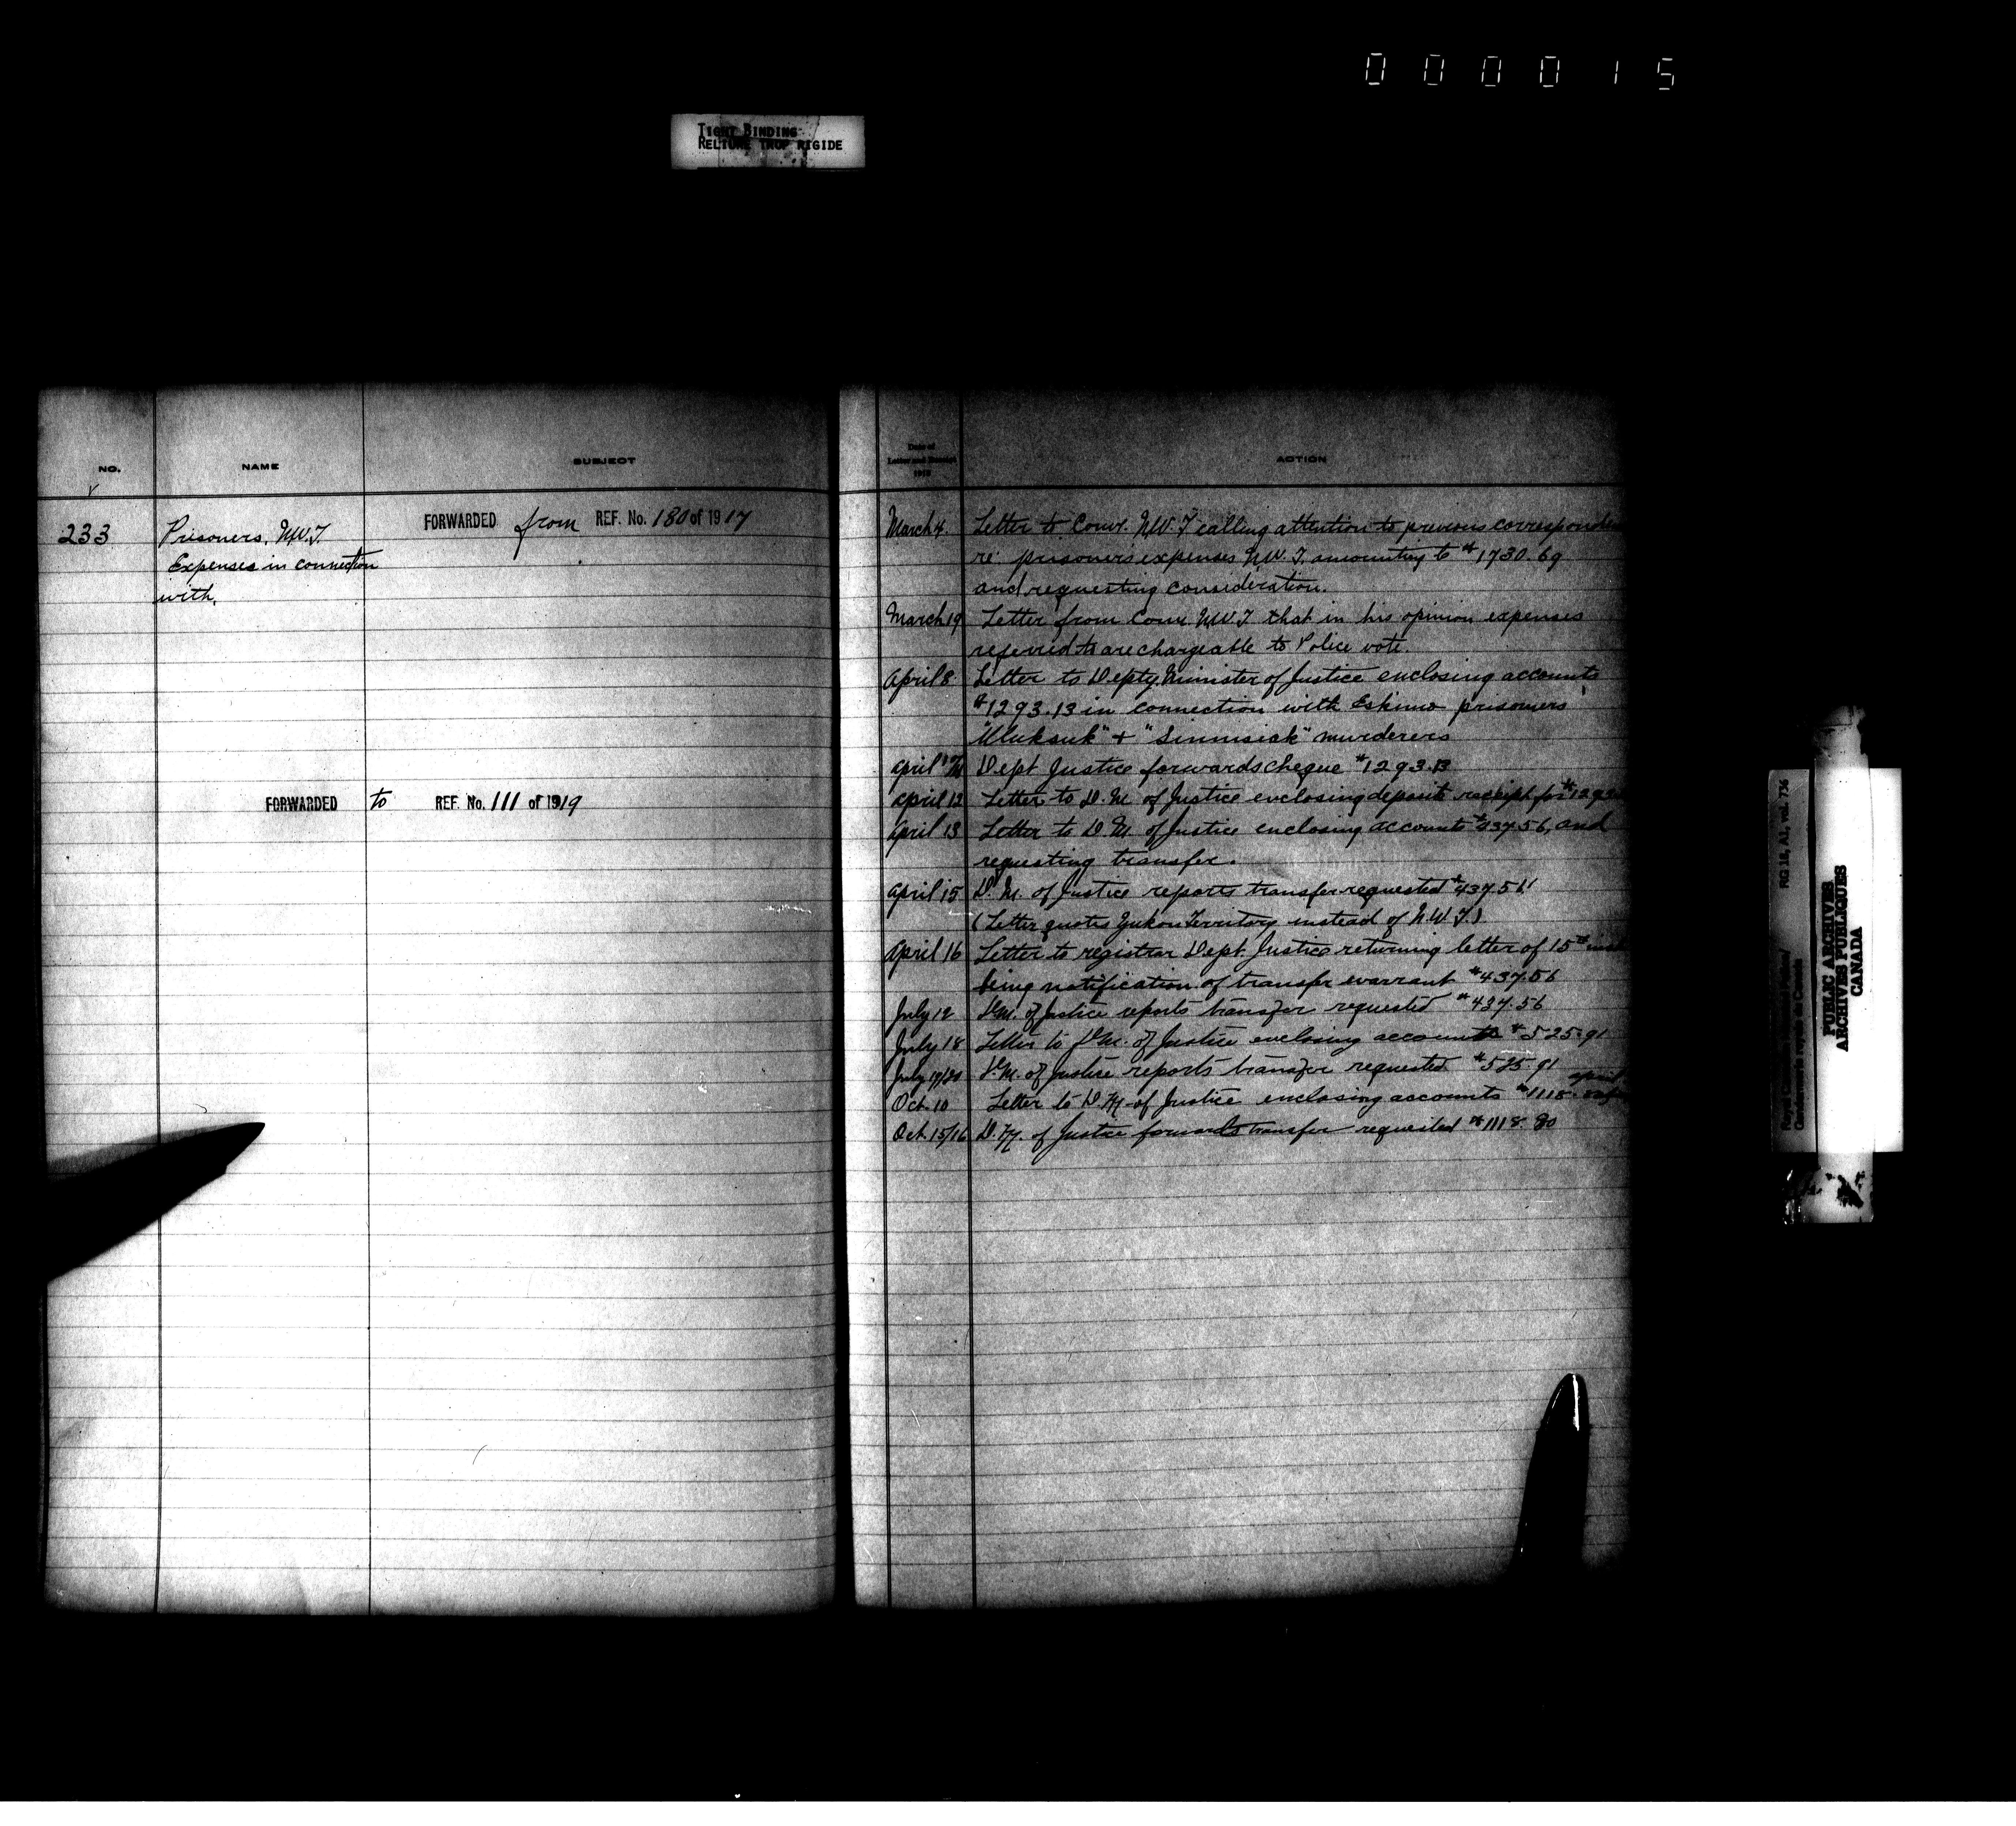 000015
TIGHT BINDING
RELIURE TROP RIGIDE
NO.
NAME
SUBJECT
233
Prisoners, N.W.T.
Expenses in connection
with.
FORWARDED from REF. No. 180 of 1917
FORWARDED to REF. No. 111 of 1919
Date of
Letter and Receipt
ACTION
March 4. Letter to Comr. N.W.T calling attention to previous
re prisoners expenses N.W.T. amounting to $1730.69
and requesting consideration.
March 19 Letter from Comr. N.W.T that in his opinion expenses
referred to are chargeable to Police vote.
April 8 Letter to Depty. Minister of Justice enclosing accounts
$1293.13 in connection with Eskimo prisoners
"Uluksuk" + "Sinnisiak" murderers
April Dept Justice forwards cheque $1293.13
April 12 Letter to D.M. of Justice enclosing deposit receipt for
April 13 Letter to D.M. of Justice enclosing accounts $437.56, and
requesting transfer.
April 15 D.M. of Justice reports transfer requested $437.56
(Letter quotes Yukon Territory instead of N.W.T.)
April 16 Letter to registrar Dept. Justice returning letter of 15th
being notification of transfer warrant $437.56
July 12 D.M. of Justice reports transfer requested $437.56
July 18 Letter to D.M. of Justice enclosing accounts $525.91
July 19/20 D.M. of Justice reports transfer requested $525.91
Oct. 10 Letter to D.M. of Justice enclosing accounts $1118. April
Oct. 15/16 D.M. of Justice forwards transfer requested $1118.80
RG 18, A1, vol. 736
Royal Canadian Mounted Police/
Gendarmerie royale du Canada
PUBLIC ARCHIVES
ARCHIVES PUBLIQUES
CANADA